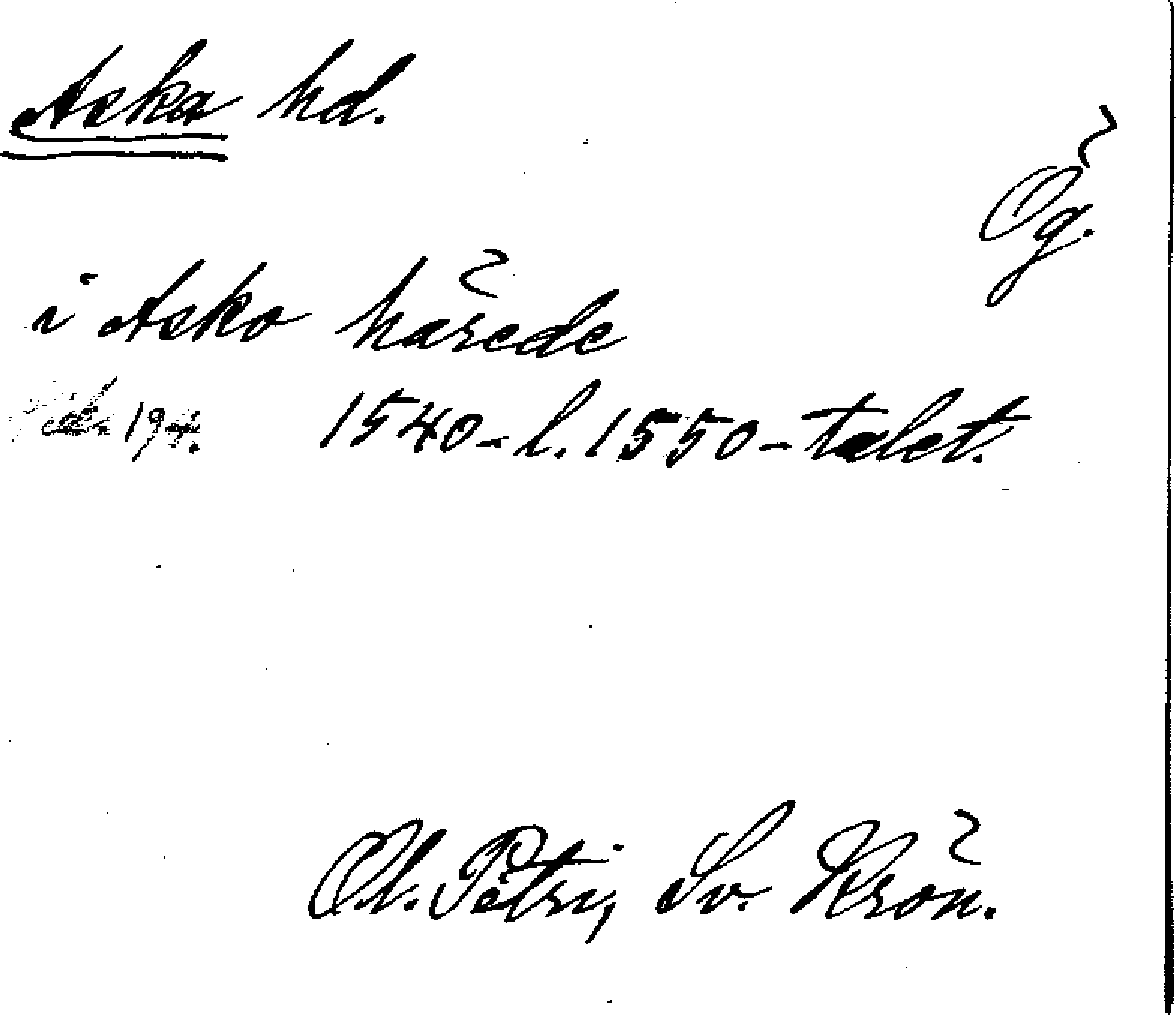 Aska hd.
Ög.
i Asko härede
sid. 194. 1540- l. 1550-talet.
Ol. Petri, Sv. Krön.